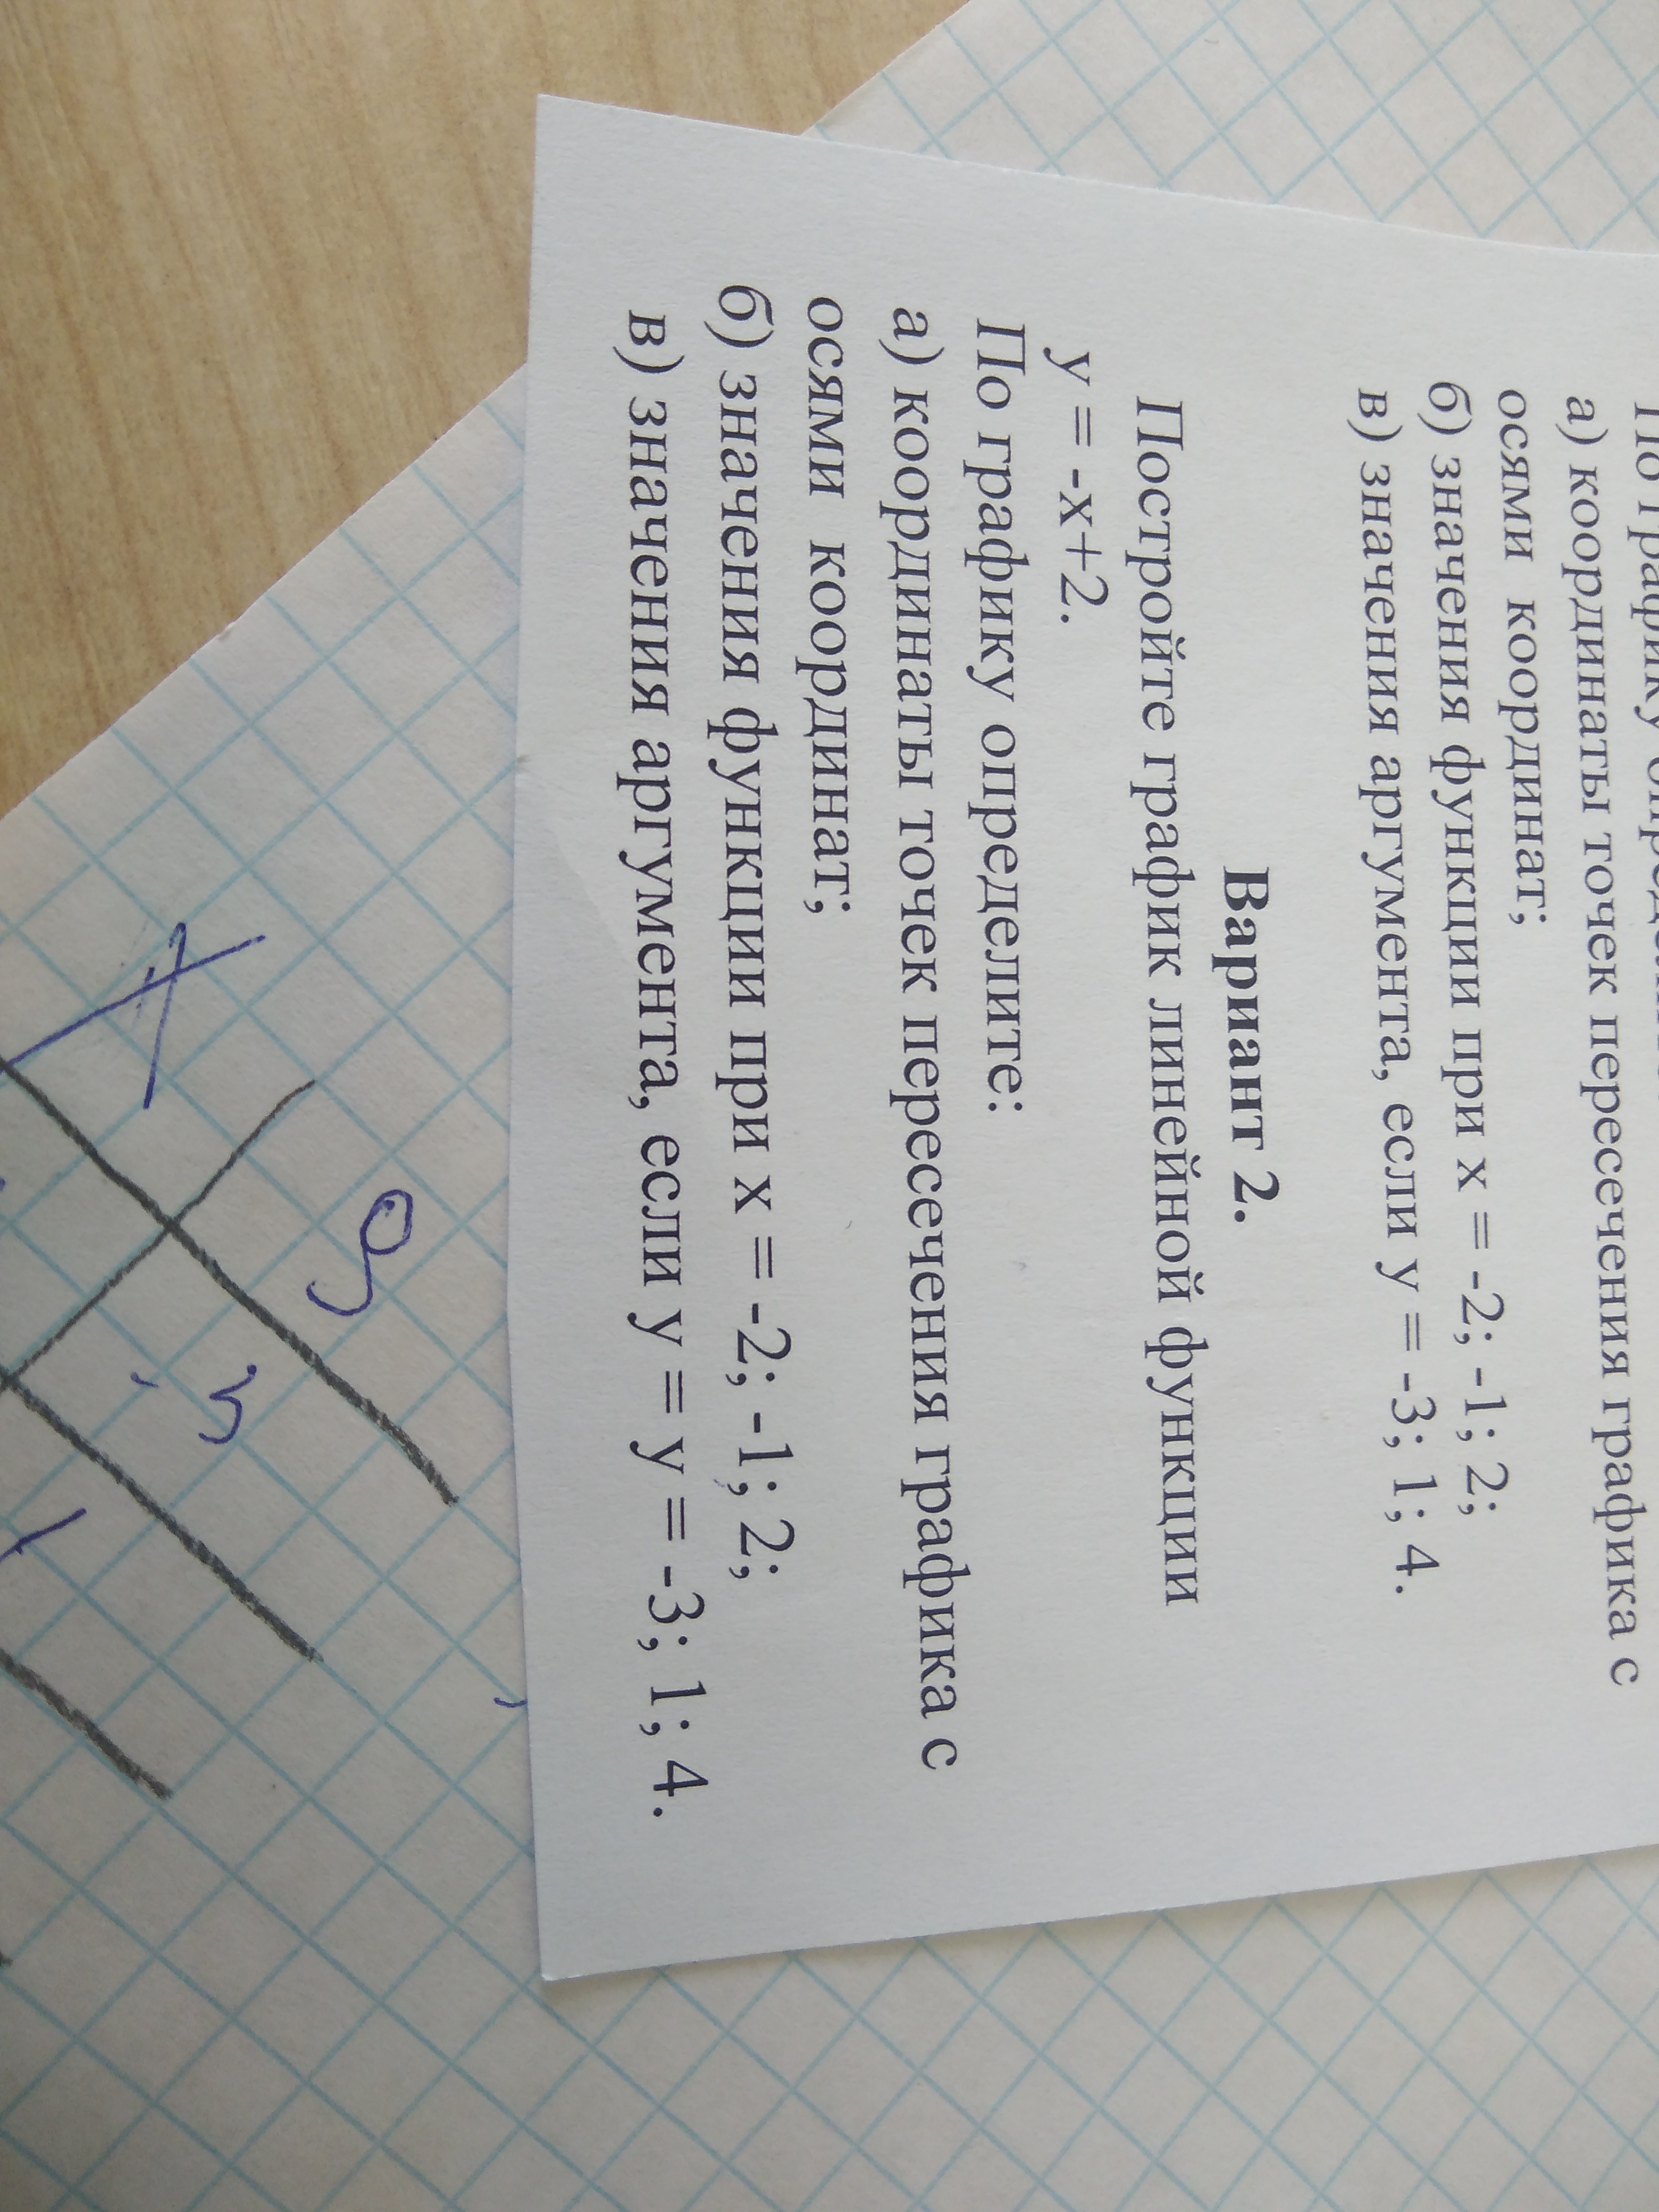 По графику
а) координаты точек пересечения графика с
осями координат;
б) значения функции при x = -2; -1; 2;
в) значения аргумента, если y = -3; 1; 4.
Вариант 2.
Постройте график линейной функции
y = -x+2.
По графику определите:
а) координаты точек пересечения графика с
осями координат;
б) значения функции при x = -2; -1; 2;
в) значения аргумента, если y = y = -3; 1; 4.